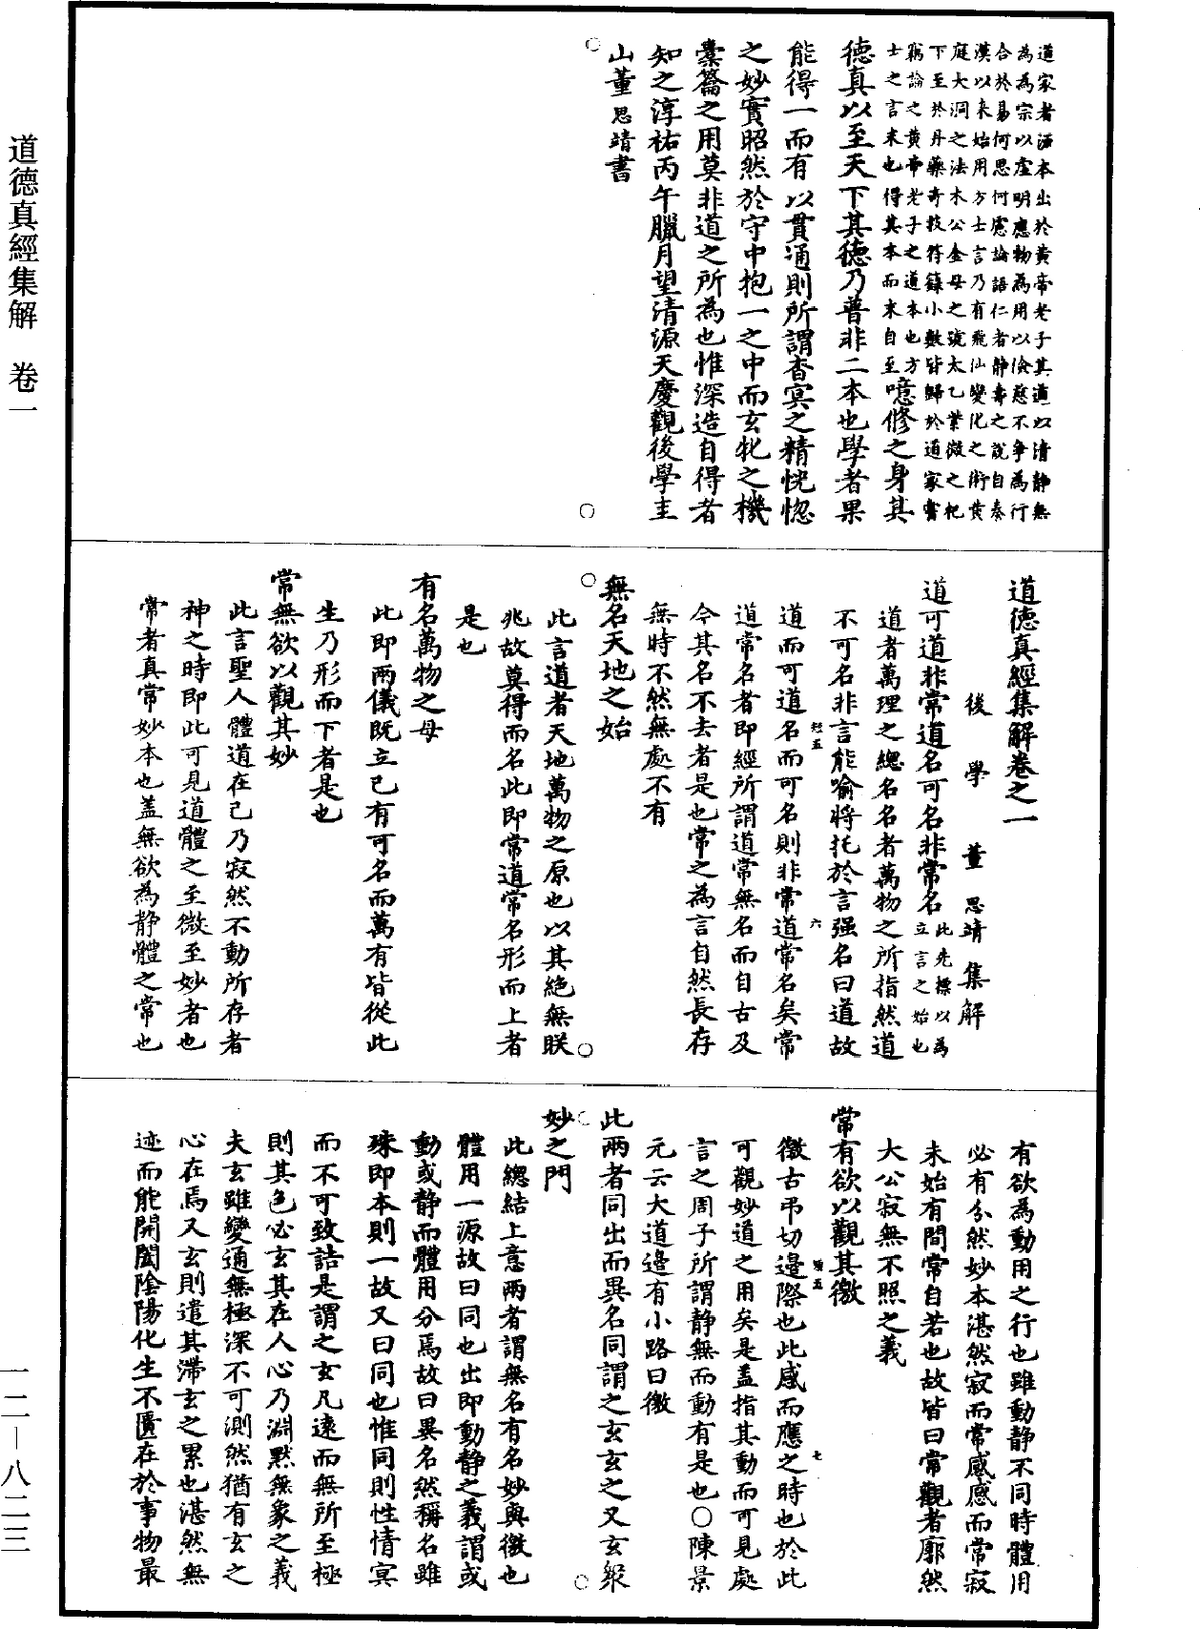 道德真經集解　卷一
道家者流本出於黃帝老子其道以清靜無
為為宗以虛明應物為用以儉慈不爭為行
合於易何思何慮論語仁者靜壽之說自秦
漢以來始用方士言乃有飛仙變化之術黃
庭大洞之法木公金母之號太乙紫微之祀
下至於丹藥奇技符籙小數皆歸於道家嘗
竊論之黃帝老子之道本也方
士之言末也得其本而末自至噫修之身其
德真以至天下其德乃普非二本也學者果
能得一而有以貫通則所謂杳冥之精恍惚
之妙實昭然於守中抱一之中而玄牝之機
橐籥之用莫非道之所為也惟深造自得者
知之淳祐丙午臘月望清源天慶觀後學圭
山董思靖書
道德真經集解卷之一
後學　董思靖集解
道可道非常道名可名非常名此先標以為
立言之始也
道者萬理之總名名者萬物之所指然道
不可名非言能喻將托於言强名曰道故
道而可道名而可名則非常道常名矣常
短五
六
道常名者即經所謂道常無名而自古及
今其名不去者是也常之為言自然長存
無時不然無處不有
無名天地之始
此言道者天地萬物之原也以其絕無眹
兆故莫得而名此即常道常名形而上者
是也
有名萬物之母
此即兩儀既立已有可名而萬有皆從此
生乃形而下者是也
常無欲以觀其妙
此言聖人體道在己乃寂然不動所存者
神之時即此可見道體之至微至妙者也
常者真常妙本也蓋無欲為靜體之常也
有欲為動用之行也雖動靜不同時體用
必有分然妙本湛然寂而常感感而常寂
未始有間常自若也故皆曰常觀者廓然
大公寂無不照之義
常有欲以觀其徼
徼古弔切邊際也此感而應之時也於此
五
七
可觀妙道之用矣是蓋指其動而可見處
言之周子所謂靜無而動有是也〇陳景
元云大道邊有小路曰徼
此兩者同出而異名同謂之玄玄之又玄眾
妙之門
此總結上意兩者謂無名有名妙與徼也
體用一源故曰同也出即動靜之義謂或
動或靜而體用分焉故曰異名然稱名雖
殊即本則一故又曰同也惟同則性情冥
而不可致詰是謂之玄凡遠而無所至極
則其色必玄其在人心乃淵默無象之義
夫玄雖變通無極深不可測然猶有玄之
心在焉又玄則遣其滯玄之累也湛然無
迹而能開闔陰陽化生不匱在於事物最
一二—八二三